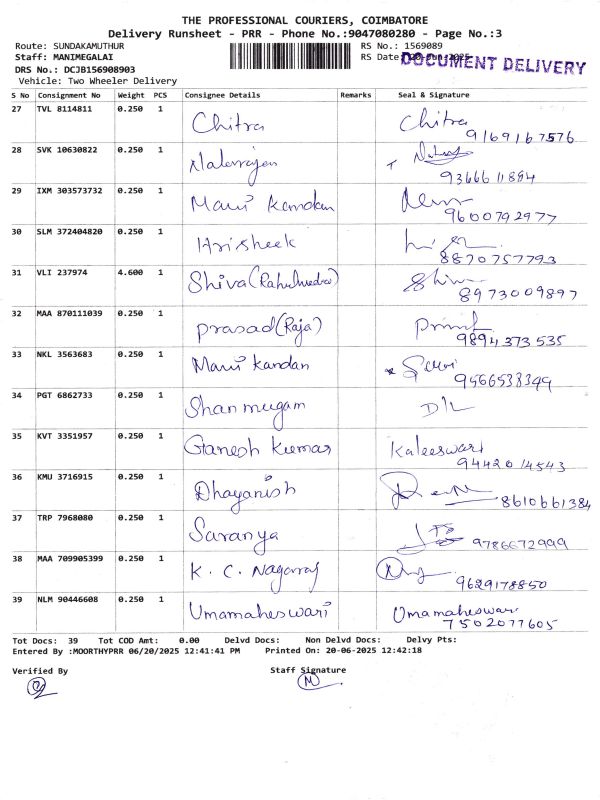 THE PROFESSIONAL COURIERS, COIMBATORE
Delivery Runsheet - PRR - Phone No.:9047080280 - Page No.:3
Route: SUNDAKAMUTHUR
RS No.: 1569089
Staff: MANIMEGALAI
RS Date: 20-Jun-2025
DOCUMENT DELIVERY
DRS No.: DCJB156908903
Vehicle: Two Wheeler Delivery
S No Consignment No Weight PCS Consignee Details Remarks Seal & Signature
27 TVL 8114811 0.250 1 Chitra Chitra
9169167576
28 SVK 10630822 0.250 1 Natarajan
9366611894
29 IXM 303573732 0.250 1 Mani Kandan
9600792977
30 SLM 372404820 0.250 1 Hrisheek
8870757793
31 VLI 237974 4.600 1 Shiva
8973009897
32 MAA 870111039 0.250 1 prasad(Raja)
9894373535
33 NKL 3563683 0.250 1 Mani kandan
9566538399
34 PGT 6862733 0.250 1 Shanmugam D/L
35 KVT 3351957 0.250 1 Ganesh Kumar Kaleeswari
9442014543
36 KMU 3716915 0.250 1 Dhayanish
8610661384
37 TRP 7968080 0.250 1 Saranya
9786672999
38 MAA 709905399 0.250 1 K. C. Nagarraj
9629178850
39 NLM 90446608 0.250 1 Umamaheswari Umamaheswari
7502077605
Tot Docs: 39 Tot COD Amt: 0.00 Delvd Docs: Non Delvd Docs: Delvy Pts:
Entered By :MOORTHYPRR 06/20/2025 12:41:41 PM Printed On: 20-06-2025 12:42:18
Verified By Staff Signature
M